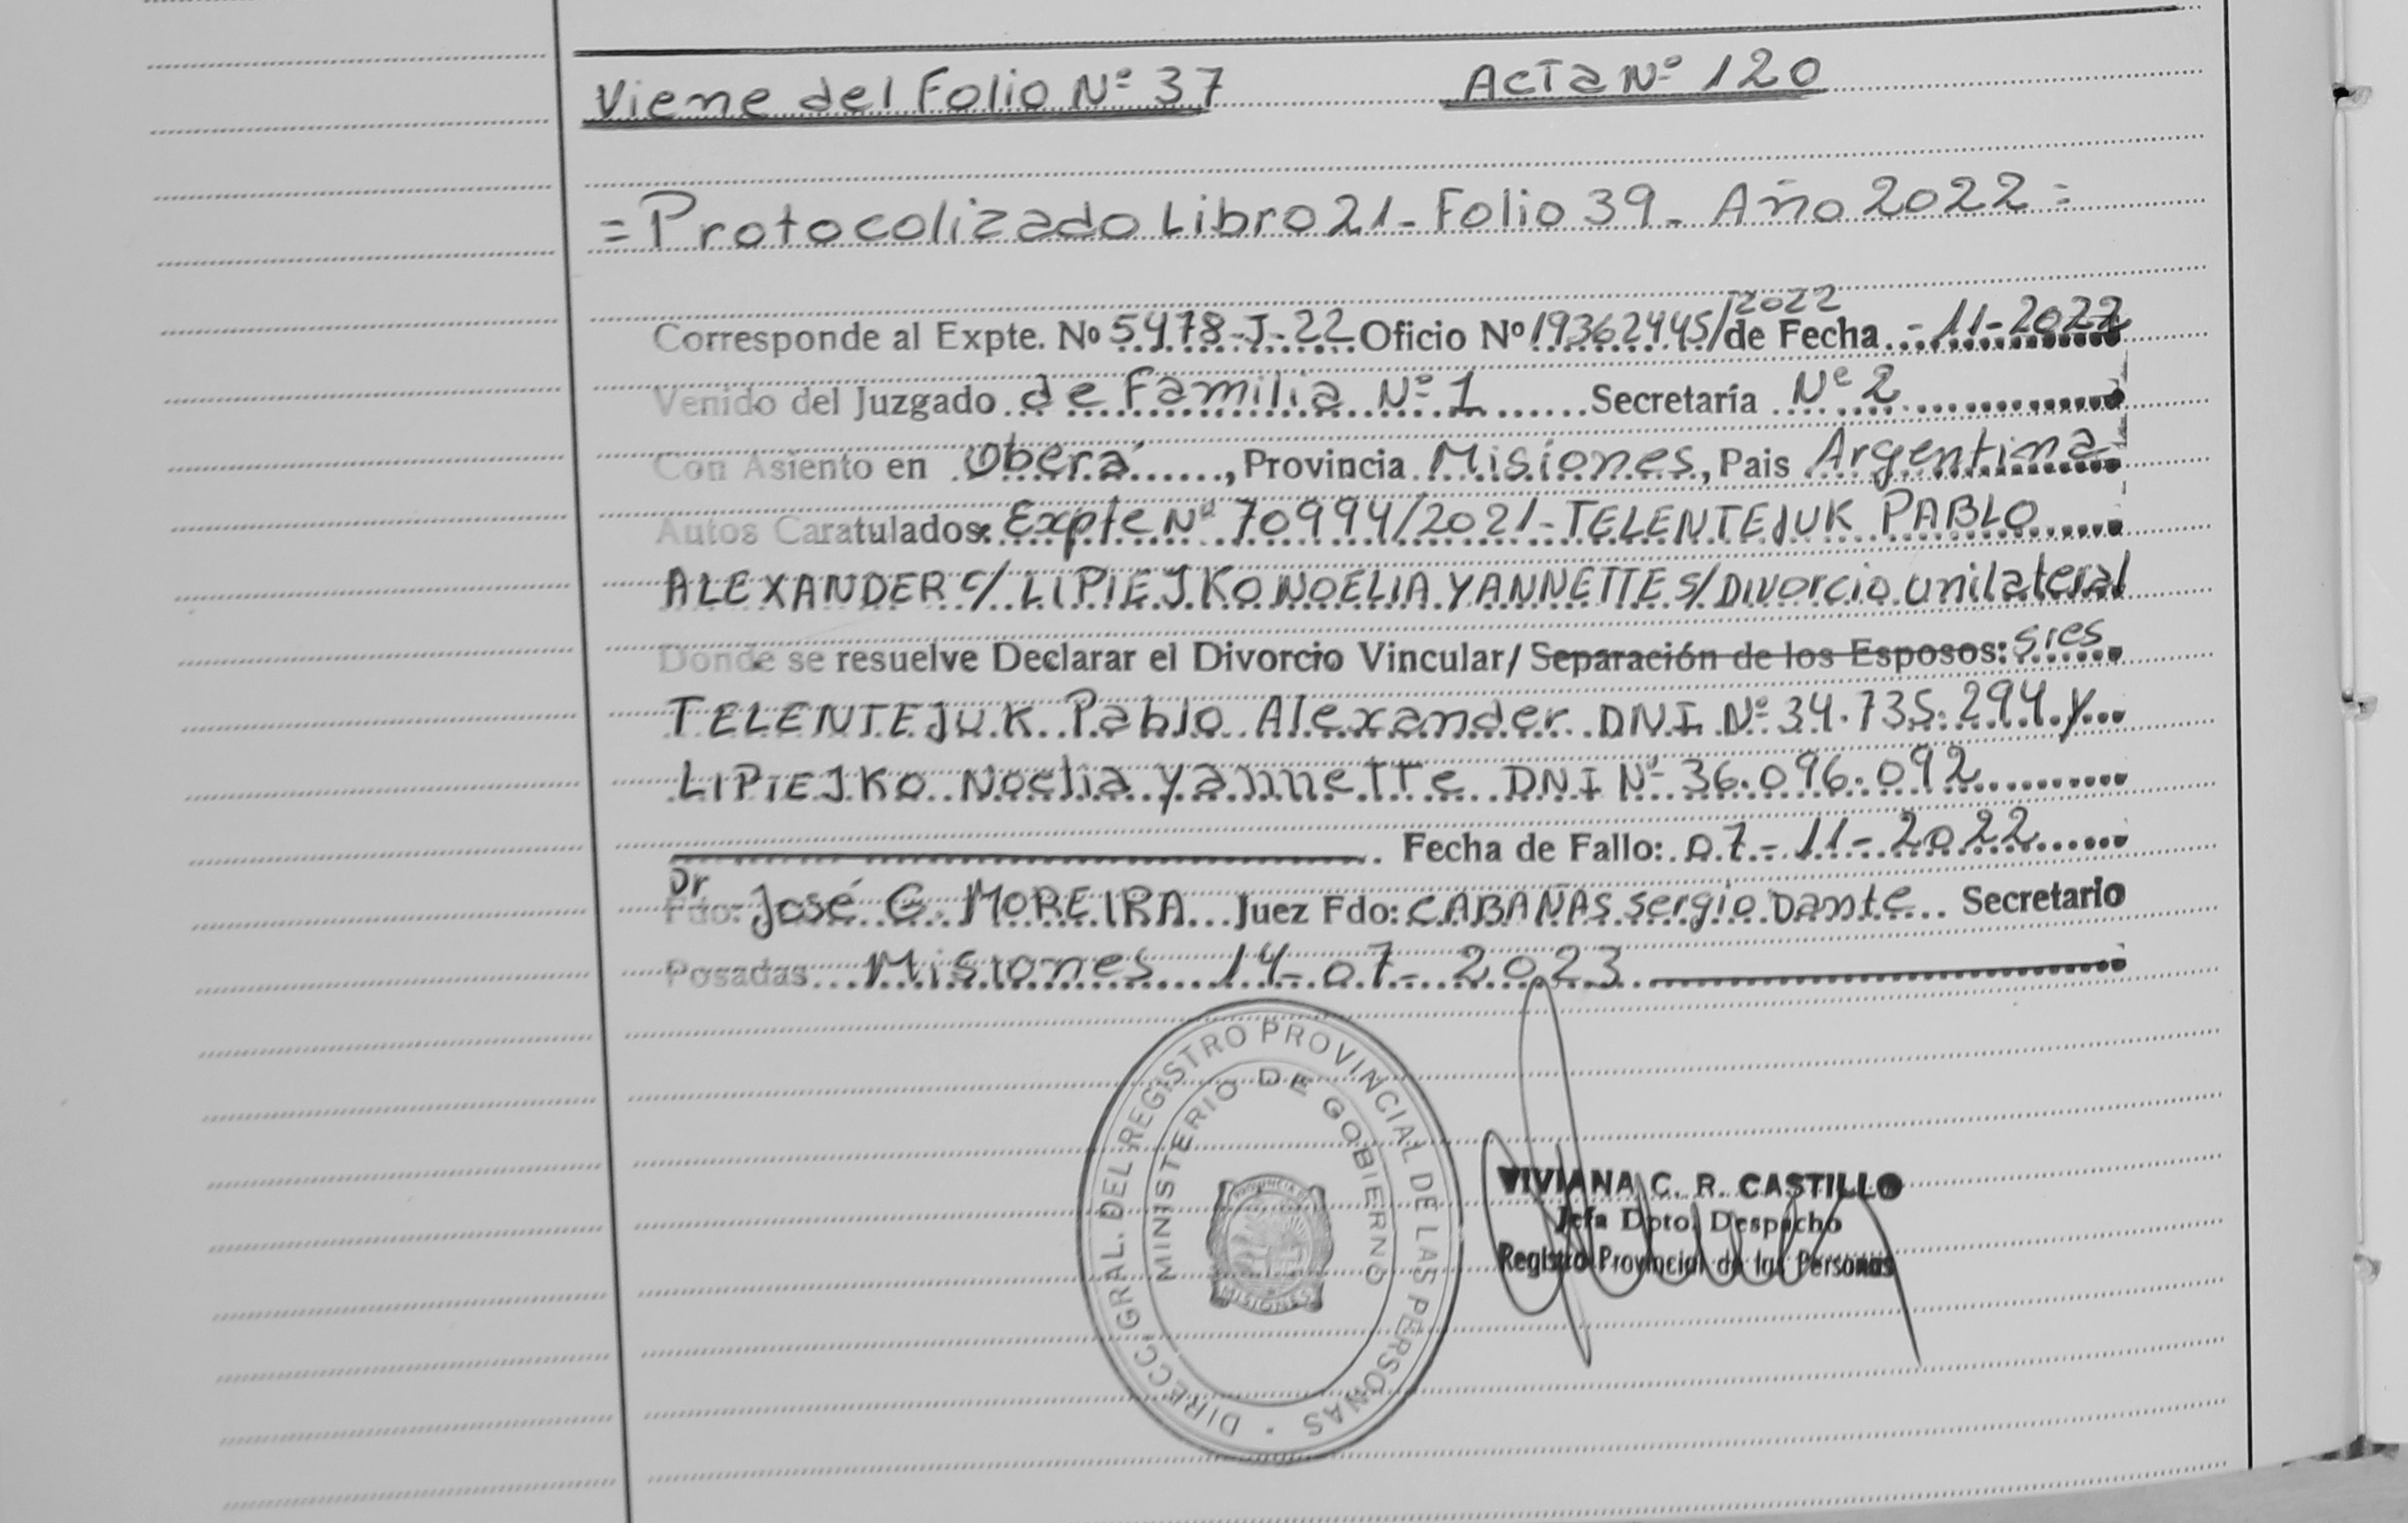 Viene del Folio Nº 37 Acta Nº 120
= Protocolizado Libro 21 - Folio 39 - Año 2022 =
Corresponde al Expte. Nº 5478-J-22 Oficio Nº 19362445/2022 de Fecha - 11-2022
Venido del Juzgado de Familia Nº 1 Secretaría Nº 2
Con Asiento en Oberá, Provincia Misiones, Pais Argentina
Autos Caratulados: Expte Nº 70994/2021 - TELENTEJUK PABLO
ALEXANDER c/ LIPIEJKO NOELIA YANNETTE s/ Divorcio unilateral
Donde se resuelve Declarar el Divorcio Vincular/ Separación de los Esposos: sres
TELENTEJUK Pablo Alexander DNI Nº 34.735.294 y
LIPIEJKO Noelia Yannette DNI Nº 36.096.092
Fecha de Fallo: 07-11-2022
Fdo: Dr José G. MOREIRA Juez Fdo: CABAÑAS Sergio Dante Secretario
Posadas Misiones 14-07-2023
DIRECC. GRAL. DEL REGISTRO PROVINCIAL DE LAS PERSONAS
MINISTERIO DE GOBIERNO
PROVINCIA DE
MISIONES
VIVIANA C. R. CASTILLO
Jefa Dpto. Despacho
Registro Provincial de las Personas